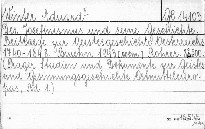 Winter Eduard:
Der Josefinismus und seine Geschichte.
Beiträge zur Geistesgeschichte Österreichs
1740-1848. Brünn, 1943 Rohrer.
(Prager Studien und Dokumente zur Geistes
und Gesinnungsgeschichte Ostmitteleuro-
pas, Bd. 1)